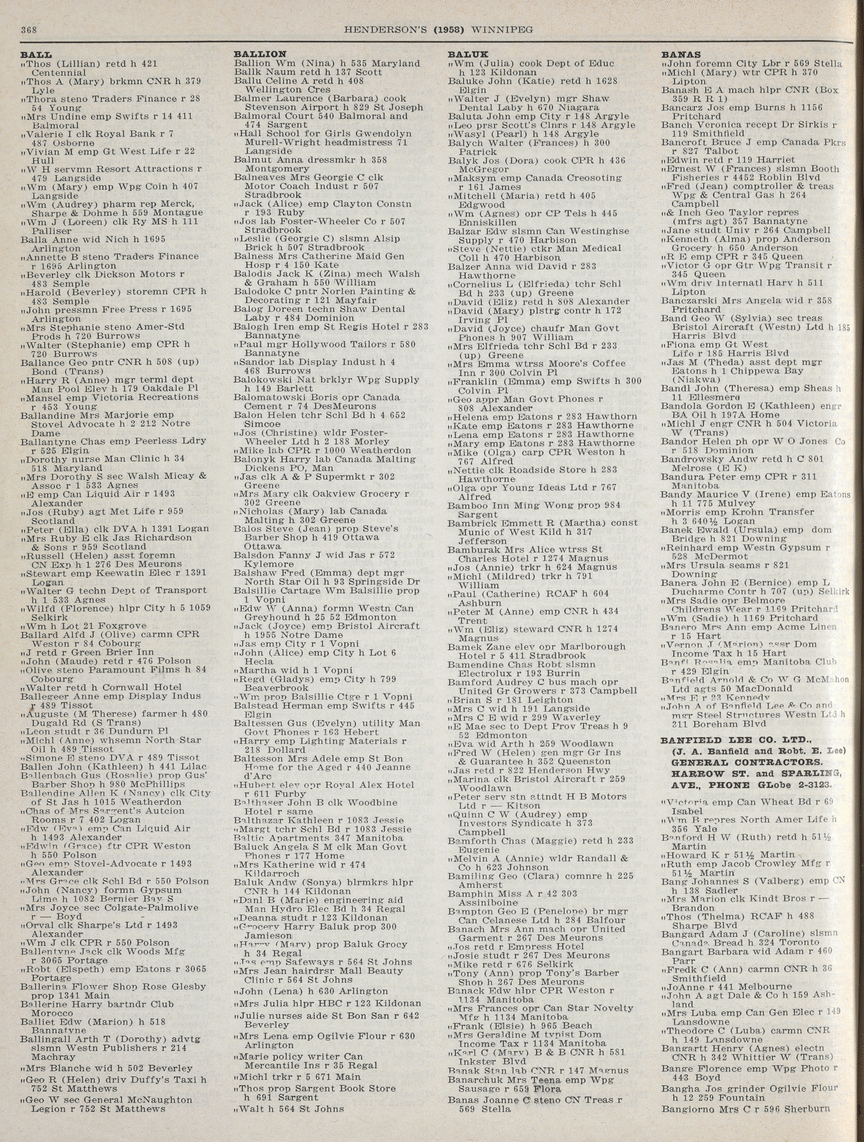 368
HENDERSON'S (1958) WINNIPEG
BALL
„Thos (Lillian) retd h 421
Centennial
„Thos A (Mary) brkmn CNR h 379
Lyle
„Thora steno Traders Finance r 28
54 Young
„Mrs Undine emp Swifts r 14 411
Balmoral
„Valerie I clk Royal Bank r 7
487 Osborne
„Vivian M emp Gt West Life r 22
Hull
„W H servmn Resort Attractions r
479 Langside
„Wm (Mary) emp Wpg Coin h 407
Langside
„Wm (Audrey) pharm rep Merck,
Sharpe & Dohme h 559 Montague
„Wm J (Loreen) clk Ry MS h 111
Palliser
Balla Anne wid Nich h 1695
Arlington
„Annette B steno Traders Finance
r 1695 Arlington
„Beverley clk Dickson Motors r
483 Semple
„Harold (Beverley) storemn CPR h
483 Semple
„John pressmn Free Press r 1695
Arlington
„Mrs Stephanie steno Amer-Std
Prods h 720 Burrows
„Walter (Stephanie) emp CPR h
720 Burrows
Ballance Geo pntr CNR h 508 (up)
Bond (Trans)
„Harry R (Anne) mgr terml dept
Man Pool Elev h 179 Oakdale Pl
„Mansel emp Victoria Recreations
r 453 Young
Ballandine Mrs Marjorie emp
Stovel Advocate h 2 212 Notre
Dame
Ballantyne Chas emp Peerless Ldry
r 525 Elgin
„Dorothy nurse Man Clinic h 34
518 Maryland
„Mrs Dorothy S sec Walsh Micay &
Assoc r 1 533 Agnes
„E emp Can Liquid Air r 1493
Alexander
„Jos (Ruby) agt Met Life r 959
Scotland
„Peter (Ella) clk DVA h 1391 Logan
„Mrs Ruby E clk Jas Richardson
& Sons r 959 Scotland
„Russell (Helen) asst foremn
CN Exp h 1 276 Des Meurons
„Stewart emp Keewatin Elec r 1391
Logan
„Walter G techn Dept of Transport
h 1 533 Agnes
„Wilfd (Florence) hlpr City h 5 1059
Selkirk
„Wm h Lot 21 Foxgrove
Ballard Alfd J (Olive) carmn CPR
Weston r 84 Cobourg
„J retd r Green Brier Inn
„John (Maude) retd r 476 Polson
„Olive steno Paramount Films h 84
Cobourg
„Walter retd h Cornwall Hotel
Ballegeer Anne emp Display Indus
r 489 Tissot
„Auguste (M Therese) farmer h 480
Dugald Rd (S Trans)
„Leon studt r 36 Dundurn Pl
„Michl (Anne) whsemn North Star
Oil h 489 Tissot
„Simone E steno DVA r 489 Tissot
Ballen John (Kathleen) h 441 Lilac
Ballenbach Gus (Rosalie) prop Gus'
Barber Shop h 980 McPhillips
Ballendine Allen K (Nancy) clk City
of St Jas h 1015 Weatherdon
„Chas of Mrs Sargent's Autcion
Rooms r 7 402 Logan
„Edw (Eva) emp Can Liquid Air
h 1493 Alexander
„Edwin (Grace) ftr CPR Weston
h 550 Polson
„Geo emp Stovel-Advocate r 1493
Alexander
„Mrs Grace clk Schl Bd r 550 Polson
„John (Nancy) formn Gypsum
Lime h 1082 Bernier Bay S
„Mrs Joyce sec Colgate-Palmolive
r — Boyd
„Orval clk Sharpe's Ltd r 1493
Alexander
„Wm J clk CPR r 550 Polson
Ballentyne Jack clk Woods Mfg
r 3065 Portage
„Robt (Elspeth) emp Eatons r 3065
Portage
Ballerina Flower Shop Rose Glesby
prop 1341 Main
Ballerine Harry bartndr Club
Morocco
Balliet Edw (Marion) h 518
Bannatyne
Ballingall Arth T (Dorothy) advtg
slsmn Westn Publishers r 214
Machray
„Mrs Blanche wid h 502 Beverley
„Geo R (Helen) driv Duffy's Taxi h
752 St Matthews
„Geo W sec General McNaughton
Legion r 752 St Matthews
BALLION
Ballion Wm (Nina) h 535 Maryland
Ballk Naum retd h 137 Scott
Ballu Celine A retd h 408
Wellington Cres
Balmer Laurence (Barbara) cook
Stevenson Airport h 829 St Joseph
Balmoral Court 540 Balmoral and
474 Sargent
„Hall School for Girls Gwendolyn
Murell-Wright headmistress 71
Langside
Balmut Anna dressmkr h 358
Montgomery
Balneaves Mrs Georgie C clk
Motor Coach Indust r 507
Stradbrook
„Jack (Alice) emp Clayton Constn
r 193 Ruby
„Jos lab Foster-Wheeler Co r 507
Stradbrook
„Leslie (Georgie C) slsmn Alsip
Brick h 507 Stradbrook
Balness Mrs Catherine Maid Gen
Hosp r 4 150 Kate
Balodis Jack K (Zina) mech Walsh
& Graham h 550 William
Balodoke C pntr Norlen Painting &
Decorating r 121 Mayfair
Balog Doreen techn Shaw Dental
Laby r 484 Dominion
Balogh Iren emp St Regis Hotel r 283
Bannatyne
„Paul mgr Hollywood Tailors r 580
Bannatyne
„Sandor lab Display Indust h 4
468 Burrows
Balokowski Nat brklyr Wpg Supply
h 149 Barlett
Balomatowski Boris opr Canada
Cement r 74 DesMeurons
Balon Helen tchr Schl Bd h 4 652
Simcoe
„Jos (Christine) wldr Foster-
Wheeler Ltd h 2 188 Morley
„Mike lab CPR r 1000 Weatherdon
Balonyk Harry lab Canada Malting
Dickens PO, Man
„Jas clk A & P Supermkt r 302
Greene
„Mrs Mary clk Oakview Grocery r
302 Greene
„Nicholas (Mary) lab Canada
Malting h 302 Greene
Balos Steve (Jean) prop Steve's
Barber Shop h 419 Ottawa
Ottawa
Balsdon Fanny J wid Jas r 572
Kylemore
Balshaw Fred (Emma) dept mgr
North Star Oil h 93 Springside Dr
Balsillie Cartage Wm Balsillie prop
1 Vopni
„Edw W (Anna) formn Westn Can
Greyhound h 25 52 Edmonton
„Jack (Joyce) emp Bristol Aircraft
h 1955 Notre Dame
„Jas emp City r 1 Vopni
„John (Alice) emp City h Lot 6
Hecla
„Regd (Gladys) emp City h 799
Beaverbrook
„Martha wid h 1 Vopni
„Wm prop Balsillie Ctge r 1 Vopni
Balstead Herman emp Swifts r 445
Elgin
Baltessen Gus (Evelyn) utility Man
Govt Phones r 163 Hebert
„Harry emp Lighting Materials r
218 Dollard
Baltesson Mrs Adele emp St Bon
Home for the Aged r 440 Jeanne
d'Arc
„Hubert elev opr Royal Alex Hotel
r 611 Furby
Balthaser John B clk Woodbine
Hotel r same
Balthazar Kathleen r 1083 Jessie
„Margt tchr Schl Bd r 1083 Jessie
Baltic Apartments 347 Manitoba
Baluck Angela S M clk Man Govt
Phones r 177 Home
„Mrs Katherine wid r 474
Kildarroch
Baluk Andw (Sonya) blrmkrs hlpr
CNR h 144 Kildonan
„Danl B (Marie) engineering aid
Man Hydro Elec Bd h 34 Regal
„Deanna studt r 123 Kildonan
„Grocery Harry Baluk prop 300
Jamieson
„Harry (Mary) prop Baluk Grocy
h 34 Regal
„Jas emp Safeways r 564 St Johns
„Mrs Jean hairdrsr Mall Beauty
Clinic r 564 St Johns
„John (Lena) h 630 Arlington
„Mrs Julia hlpr HBC r 123 Kildonan
„Julie nurses aide St Bon San r 642
Beverley
„Mrs Lena emp Ogilvie Flour r 630
Arlington
„Marie policy writer Can
Mercantile Ins r 35 Regal
„Michl trkr r 5 671 Main
„Thos prop Sargent Book Store
h 691 Sargent
„Walt h 564 St Johns
BALUK
„Wm (Julia) cook Dept of Educ
h 123 Kildonan
Baluke John (Katie) retd h 1628
Elgin
„Walter J (Evelyn) mgr Shaw
Dental Laby h 670 Niagara
Baluta John emp City r 148 Argyle
„Leo prsr Scott's Clnrs r 148 Argyle
„Wasyl (Pearl) h 148 Argyle
Balych Walter (Frances) h 300
Patrick
Balyk Jos (Dora) cook CPR h 436
McGregor
„Maksym emp Canada Creosoting
r 161 James
„Mitchell (Maria) retd h 405
Edgwood
„Wm (Agnes) opr CP Tels h 445
Enniskillen
Balzar Edw slsmn Can Westinghse
Supply r 470 Harbison
„Steve (Nettie) ctkr Man Medical
Coll h 470 Harbison
Balzer Anna wid David r 283
Hawthorne
„Cornelius L (Elfrieda) tchr Schl
Bd h 233 (up) Greene
„David (Eliz) retd h 808 Alexander
„David (Mary) plstrg contr h 172
Irving Pl
„David (Joyce) chaufr Man Govt
Phones h 907 William
„Mrs Elfrieda tchr Schl Bd r 233
(up) Greene
„Mrs Emma wtrss Moore's Coffee
Inn r 300 Colvin Pl
„Franklin (Emma) emp Swifts h 300
Colvin Pl
„Geo appr Man Govt Phones r
808 Alexander
„Helena emp Eatons r 283 Hawthorn
„Kate emp Eatons r 283 Hawthorne
„Lena emp Eatons r 283 Hawthorne
„Mary emp Eatons r 283 Hawthorne
„Mike (Olga) carp CPR Weston h
767 Alfred
„Nettie clk Roadside Store h 283
Hawthorne
„Olga opr Young Ideas Ltd r 767
Alfred
Bamboo Inn Ming Wong prop 984
Sargent
Bambrick Emmett R (Martha) const
Munic of West Kild h 317
Jefferson
Bamburak Mrs Alice wtrss St
Charles Hotel r 1274 Magnus
„Jos (Annie) trkr h 624 Magnus
„Michl (Mildred) trkr h 791
William
„Paul (Catherine) RCAF h 604
Ashburn
„Peter M (Anne) emp CNR h 434
Trent
„Wm (Eliz) steward CNR h 1274
Magnus
Bamek Zane elev opr Marlborough
Hotel r 5 411 Stradbrook
Bamendine Chas Robt slsmn
Electrolux r 193 Burrin
Bamford Audrey C bus mach opr
United Gr Growers r 373 Campbell
„Brian S r 181 Leighton
„Mrs C wid h 191 Langside
„Mrs C E wid r 299 Waverley
„E Mae sec to Dept Prov Treas h 9
52 Edmonton
„Eva wid Arth h 259 Woodlawn
„Fred W (Helen) gen mgr Gr Ins
& Guarantee h 352 Queenston
„Jas retd r 822 Henderson Hwy
„Marina clk Bristol Aircraft r 259
Woodlawn
„Peter serv stn attndt H B Motors
Ltd r — Kitson
„Quinn C W (Audrey) emp
Investors Syndicate h 373
Campbell
Bamforth Chas (Maggie) retd h 233
Eugenie
„Melvin A (Annie) wldr Randall &
Co h 623 Johnson
Bamiling Geo (Clara) comnre h 225
Amherst
Bamphin Miss A r 42 303
Assiniboine
Bampton Geo E (Penelope) br mgr
Can Celanese Ltd h 284 Balfour
Banach Mrs Ann mach opr United
Garment r 267 Des Meurons
„Jos retd r Empress Hotel
„Josie studt r 267 Des Meurons
„Mike retd r 676 Selkirk
„Tony (Ann) prop Tony's Barber
Shop h 267 Des Meurons
Banack Edw hlpr CPR Weston r
1134 Manitoba
„Mrs Frances opr Can Star Novelty
Mfg h 1134 Manitoba
„Frank (Elsie) h 965 Beach
„Mrs Geraldine M typist Dom
Income Tax r 1134 Manitoba
„Karl C (Mary) B & B CNR h 581
Inkster Blvd
Banak Stan lab CNR r 147 Magnus
Banarchuk Mrs Teena emp Wpg
Sausage r 659 Flora
Banas Joanne C steno CN Treas r
569 Stella
BANAS
„John foremn City Lbr r 569 Stella
„Michl (Mary) wtr CPR h 370
Lipton
Banash E A mach hlpr CNR (Box
359 R R 1)
Bancarz Jos emp Burns h 1156
Pritchard
Banch Veronica recept Dr Sirkis r
119 Smithfield
Bancroft Bruce J emp Canada Pkrs
r 827 Talbot
„Edwin retd r 119 Harriet
„Ernest W (Frances) slsmn Booth
Fisheries r 4452 Roblin Blvd
„Fred (Jean) comptroller & treas
Wpg & Central Gas h 264
Campbell
„& Inch Geo Taylor repres
(mfrs agt) 357 Bannatyne
„Jane studt Univ r 264 Campbell
„Kenneth (Alma) prop Anderson
Grocery h 650 Anderson
„R E emp CPR r 345 Queen
„Victor G opr Gtr Wpg Transit r
345 Queen
„Wm driv Internatl Harv h 511
Lipton
Banczarski Mrs Angela wid r 358
Pritchard
Band Geo W (Sylvia) sec treas
Bristol Aircraft (Westn) Ltd h 185
Harris Blvd
„Fiona emp Gt West
Life r 185 Harris Blvd
„Jas M (Theda) asst dept mgr
Eatons h 1 Chippewa Bay
(Niakwa)
Bandl John (Theresa) emp Sheas h
11 Ellesmere
Bandola Gordon E (Kathleen) engr
BA Oil h 197A Home
„Michl J engr CNR h 504 Victoria
W (Trans)
Bandor Helen ph opr W O Jones Co
r 518 Dominion
Bandrowsky Andw retd h C 801
Melrose (E K)
Bandura Peter emp CPR r 311
Manitoba
Bandy Maurice V (Irene) emp Eatons
h 11 775 Mulvey
„Morris emp Krohn Transfer
h 3 640½ Logan
Banek Ewald (Ursula) emp dom
Bridge h 821 Downing
„Reinhard emp Westn Gypsum r
528 McDermot
„Mrs Ursula seams r 821
Downing
Banera John E (Bernice) emp L
Ducharme Contr h 707 (up) Selkirk
„Mrs Sadie opr Belmore
Childrens Wear r 1169 Pritchard
„Wm (Sadie) h 1169 Pritchard
Banero Mrs Ann emp Acme Linen
r 15 Hart
„Vernon J (Marion) assr Dom
Income Tax h 15 Hart
Banfi Rosalia emp Manitoba Club
r 429 Elgin
Banfield Arnold & Co W G McMahon
Ltd agts 50 MacDonald
„Mrs E r 23 Kennedy
„John A of Banfield Lee & Co and
mgr Steel Structures Westn Ltd h
311 Boreham Blvd
BANFIELD LEE CO. LTD.,
(J. A. Banfield and Robt. E. Lee)
GENERAL CONTRACTORS.
HARROW ST. and SPARLING,
AVE., PHONE GLobe 2-3123.
„Victoria emp Can Wheat Bd r 69
Isabel
„Wm B repres North Amer Life h
356 Yale
Banford H W (Ruth) retd h 51½
Martin
„Howard K r 51½ Martin
„Ruth emp Jacob Crowley Mfg r
51½ Martin
Bang Johannes S (Valberg) emp CN
h 138 Sadler
„Mrs Marion clk Kindt Bros r —
Brandon
„Thos (Thelma) RCAF h 488
Sharpe Blvd
Bangard Adam J (Caroline) slsmn
Canada Bread h 324 Toronto
Bangart Barbara wid Adam r 460
Parr
„Fredk C (Ann) carmn CNR h 36
Smithfield
„JoAnne r 441 Melbourne
„John A agt Dale & Co h 159 Ash-
land
„Mrs Luba emp Can Gen Elec r 149
Lansdowne
„Theodore C (Luba) carmn CNR
h 149 Lansdowne
Bangartt Henry (Agnes) electn
CNR h 342 Whittier W (Trans)
Bange Florence emp Wpg Photo r
443 Boyd
Bangha Jos grinder Ogilvie Flour
h 12 259 Fountain
Bangiorno Mrs C r 596 Sherburn